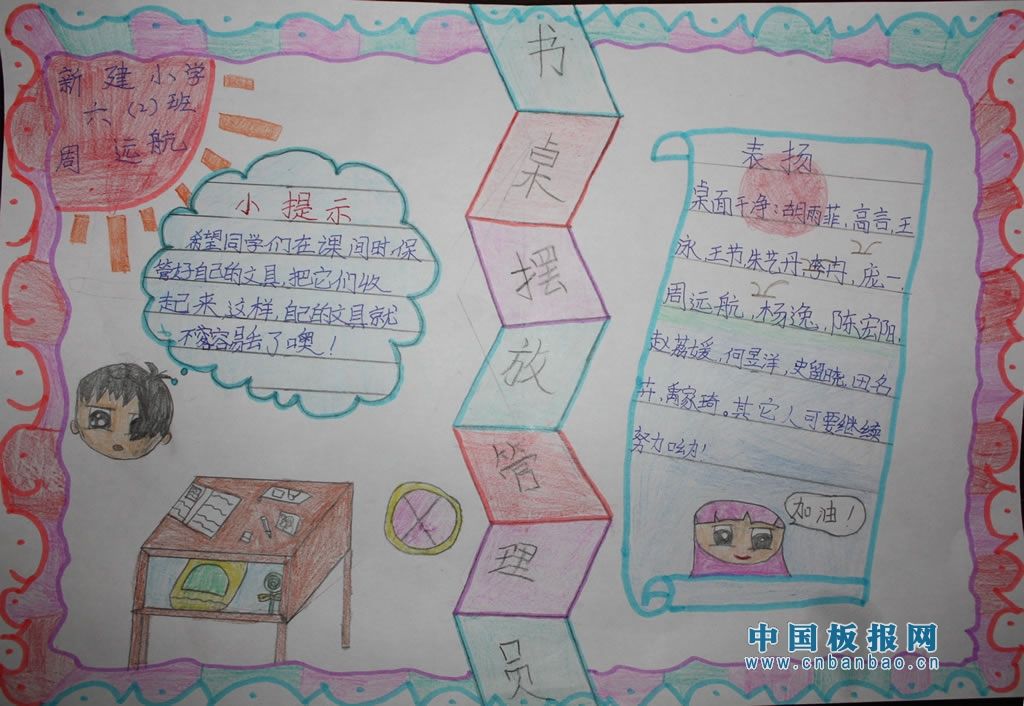 新建小学
六(2)班
周远航
小提示
希望同学们在课间时,保
管好自己的文具,把它们收
起来,这样,自己的文具就
不容容易丢了噢!
书桌摆放管理员
表扬
桌面干净:胡雨菲,高言,王
泳,王节,朱艺丹,李冉,庞一
元
周远航,杨逸,陈宏阳,
元
赵荔媛,何昱洋,史留晓,田名
卉,禹家琦。其它人可要继续
努力呦!
加油!
中国板报网
www.cnbanbao.cn